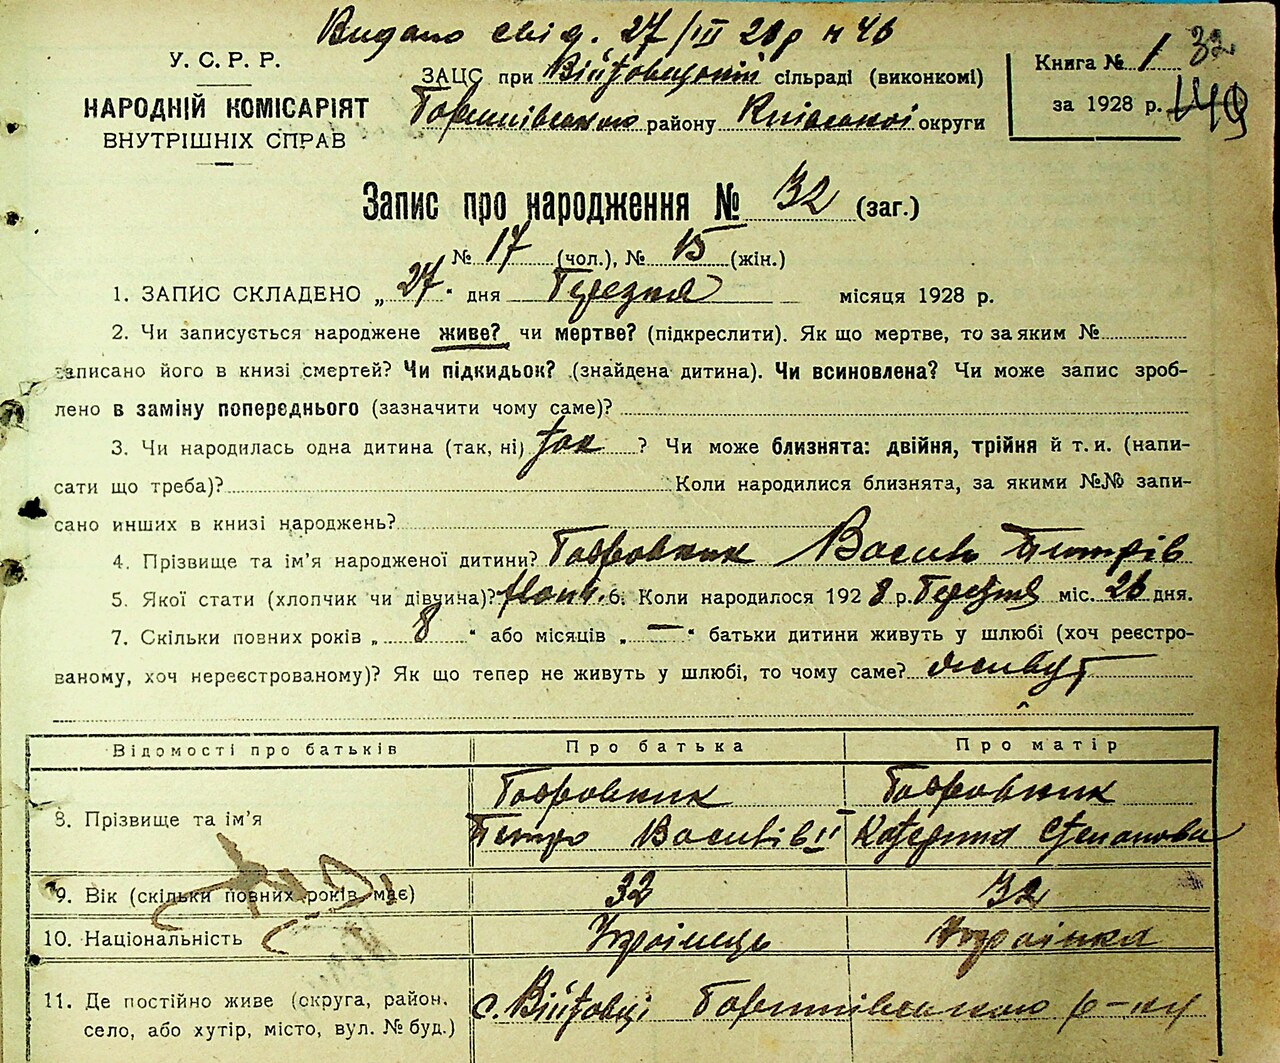 Видано свід. 27/III 28р н 46
У. С. Р. Р.
НАРОДНІЙ КОМІСАРІЯТ
ВНУТРІШНІХ СПРАВ
ЗАЦС при Війтовецькій сільраді (виконкомі)
району Київської округи
Книга № 1
за 1928 р.
32
Запис про народження № 32 (заг.)
№ 17 (чол.), № 15 (жін.)
1. ЗАПИС СКЛАДЕНО „ 27 “ дня Березня місяця 1928 р.
2. Чи записується народжене живе? чи мертве? (підкреслити). Як що мертве, то за яким №
записано його в книзі смертей? Чи підкидьок? (знайдена дитина). Чи всиновлена? Чи може запис зроб-
лено в заміну попереднього (зазначити чому саме)?
3. Чи народилась одна дитина (так, ні) так ? Чи може близнята: двійня, трійня й т. и. (напи-
сати що треба)? Коли народилися близнята, за якими №№ запи-
сано инших в книзі народжень?
4. Прізвище та ім'я народженої дитини? Бобровник Василь Петрів
5. Якої стати (хлопчик чи дівчина)? 6. Коли народилося 192 8 р. Березня міс. 26 дня.
7. Скільки повних років „ 8 “ або місяців „ — “ батьки дитини живуть у шлюбі (хоч реєстро-
ваному, хоч нереєстрованому)? Як що тепер не живуть у шлюбі, то чому саме? живут
Відомості про батьків Про батька Про матір
8. Прізвище та ім'я
Бобровник Бобровник
Петро Василів II Катерина Степанова
9. Вік (скільки повних років має) 33 32
10. Національність Українець Українка
11. Де постійно живе (округа, район,
село, або хутір, місто, вул. № буд.)
с. Війтовці р-ну